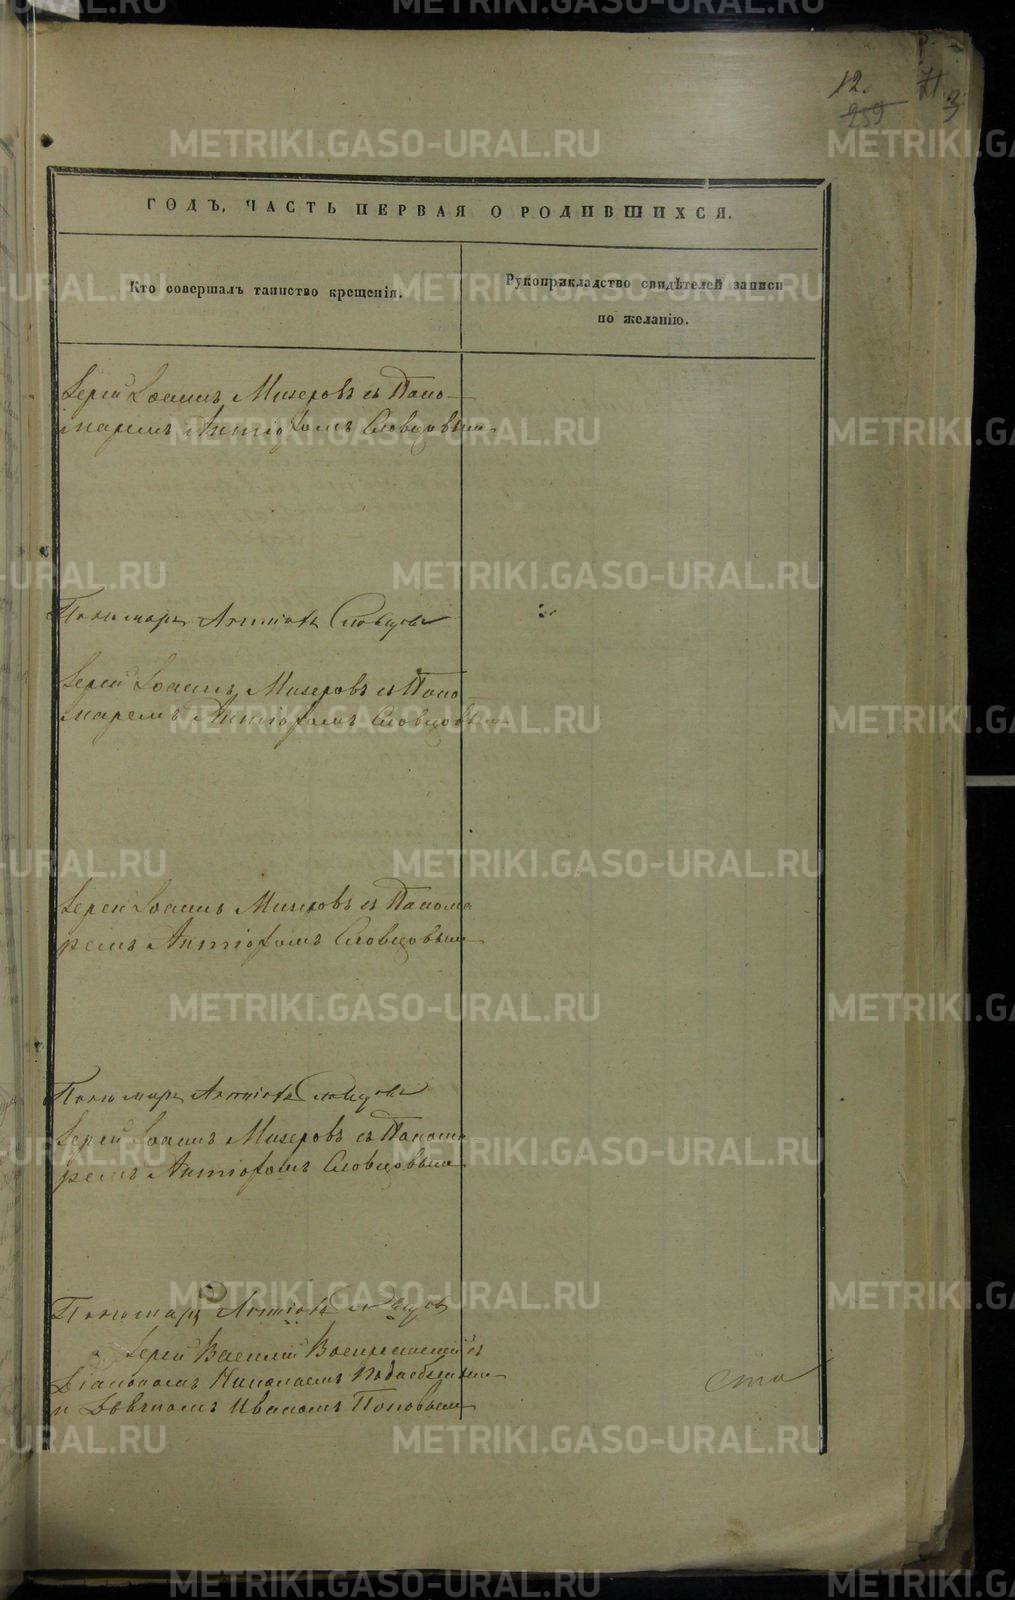 12.
259
3
ГОДЪ, ЧАСТЬ ПЕРВАЯ О РОДИВШИХСЯ.
Кто совершалъ таинство крещенія.
Рукоприкладство свидѣтелей записи
по желанію.
Іерей Іоаннъ Мизеровъ съ Поно-
маремъ Антіохомъ Словцовымъ
Пономарь Антіохъ Словцовъ
Іерей Іоаннъ Мизеровъ съ Поно
маремъ Антіохомъ Словцовымъ
Іерей Іоаннъ Мизеровъ съ Понома
ремъ Антіохомъ Словцовымъ
Пономарь Антіохъ Словцовъ
Іерей Іоаннъ Мизеровъ съ Понома
ремъ Антіохомъ Словцовымъ
Пономарь Антіохъ Словцовъ
Іерей Василій съ
Діакономъ Николаемъ
и Дьячкомъ Иваномъ Поповымъ
METRIKI.GASO-URAL.RU